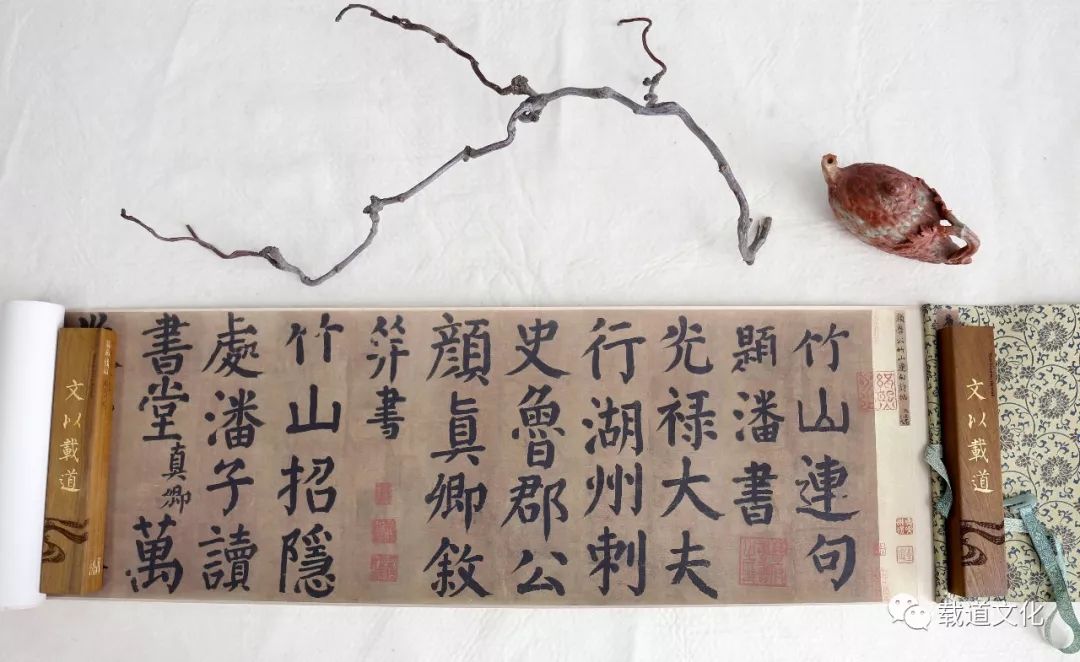 顏魯公竹山連句詩帖
竹山連句
題潘書
光禄大夫
行湖州刺
史魯郡公
顔真卿敘
并書
竹山招隱
處潘子讀
書堂真卿萬
文以載道
文以載道
载道文化